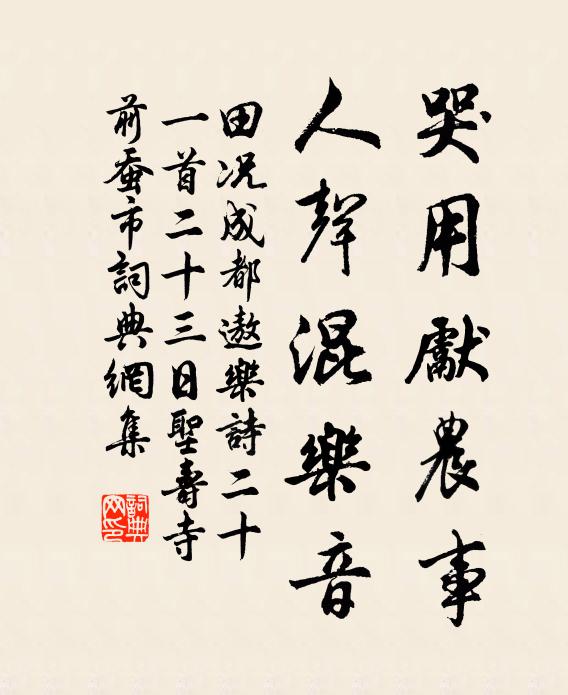 哭用獻農事
人聲混樂音
田况成都遨樂詩二十
一首二十三日聖壽寺
前蚕市詞典網集
詞典网印